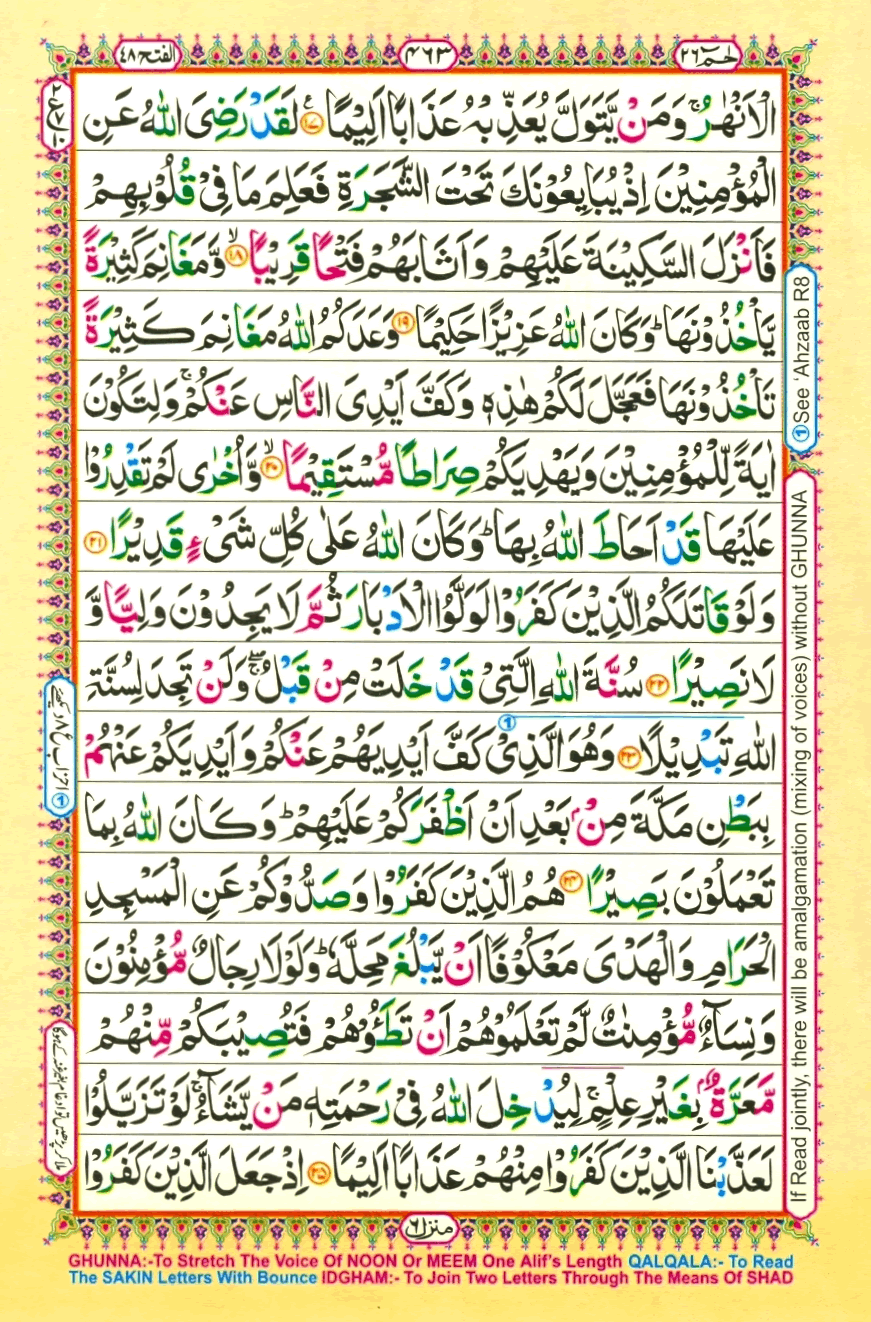 حٰمٓ ٢٦
٤٦٣
الفتح ٤٨
الْاَنْهٰرُ ۚ وَمَنْ يَّتَوَلَّ يُعَذِّبْهُ عَذَابًا اَلِيْمًا ۧ ﴿١٧﴾ لَقَدْ رَضِیَ اللّٰهُ عَنِ
الْمُؤْمِنِيْنَ اِذْ يُبَايِعُوْنَكَ تَحْتَ الشَّجَرَةِ فَعَلِمَ مَا فِیْ قُلُوْبِهِمْ
فَاَنْزَلَ السَّكِيْنَةَ عَلَيْهِمْ وَاَثَابَهُمْ فَتْحًا قَرِيْبًا ۙ ﴿١٨﴾ وَّمَغَانِمَ كَثِيْرَةً
يَّاْخُذُوْنَهَا ؕ وَكَانَ اللّٰهُ عَزِيْزًا حَكِيْمًا ﴿١٩﴾ وَعَدَكُمُ اللّٰهُ مَغَانِمَ كَثِيْرَةً
تَاْخُذُوْنَهَا فَعَجَّلَ لَكُمْ هٰذِهٖ وَكَفَّ اَيْدِیَ النَّاسِ عَنْكُمْ ۚ وَلِتَكُوْنَ
اٰيَةً لِّلْمُؤْمِنِيْنَ وَيَهْدِيَكُمْ صِرَاطًا مُّسْتَقِيْمًا ۙ ﴿٢٠﴾ وَّاُخْرٰی لَمْ تَقْدِرُوْا
عَلَيْهَا قَدْ اَحَاطَ اللّٰهُ بِهَا ؕ وَكَانَ اللّٰهُ عَلٰی كُلِّ شَیْءٍ قَدِيْرًا ﴿٢١﴾
وَلَوْ قَاتَلَكُمُ الَّذِيْنَ كَفَرُوْا لَوَلَّوُا الْاَدْبَارَ ثُمَّ لَا يَجِدُوْنَ وَلِيًّا وَّ
لَا نَصِيْرًا ﴿٢٢﴾ سُنَّةَ اللّٰهِ الَّتِیْ قَدْ خَلَتْ مِنْ قَبْلُ ۖۚ وَلَنْ تَجِدَ لِسُنَّةِ
اللّٰهِ تَبْدِيْلًا ﴿٢٣﴾ وَهُوَ الَّذِیْ كَفَّ اَيْدِيَهُمْ عَنْكُمْ وَاَيْدِيَكُمْ عَنْهُمْ
بِبَطْنِ مَكَّةَ مِنْۢ بَعْدِ اَنْ اَظْفَرَكُمْ عَلَيْهِمْ ؕ وَكَانَ اللّٰهُ بِمَا
تَعْمَلُوْنَ بَصِيْرًا ﴿٢٤﴾ هُمُ الَّذِيْنَ كَفَرُوْا وَصَدُّوْكُمْ عَنِ الْمَسْجِدِ
الْحَرَامِ وَالْهَدْیَ مَعْكُوْفًا اَنْ يَّبْلُغَ مَحِلَّهٗ ؕ وَلَوْلَا رِجَالٌ مُّؤْمِنُوْنَ
وَنِسَآءٌ مُّؤْمِنٰتٌ لَّمْ تَعْلَمُوْهُمْ اَنْ تَطَـُٔوْهُمْ فَتُصِيْبَكُمْ مِّنْهُمْ
مَّعَرَّةٌۢ بِغَيْرِ عِلْمٍ ۚ لِيُدْخِلَ اللّٰهُ فِیْ رَحْمَتِهٖ مَنْ يَّشَآءُ ۚ لَوْ تَزَيَّلُوْا
لَعَذَّبْنَا الَّذِيْنَ كَفَرُوْا مِنْهُمْ عَذَابًا اَلِيْمًا ﴿٢٥﴾ اِذْ جَعَلَ الَّذِيْنَ كَفَرُوْا
① See 'Ahzaab R8
If Read jointly, there will be amalgamation (mixing of voices) without GHUNNA
منزل ٦
GHUNNA:-To Stretch The Voice Of NOON Or MEEM One Alif's Length QALQALA:- To Read
The SAKIN Letters With Bounce IDGHAM:- To Join Two Letters Through The Means Of SHAD